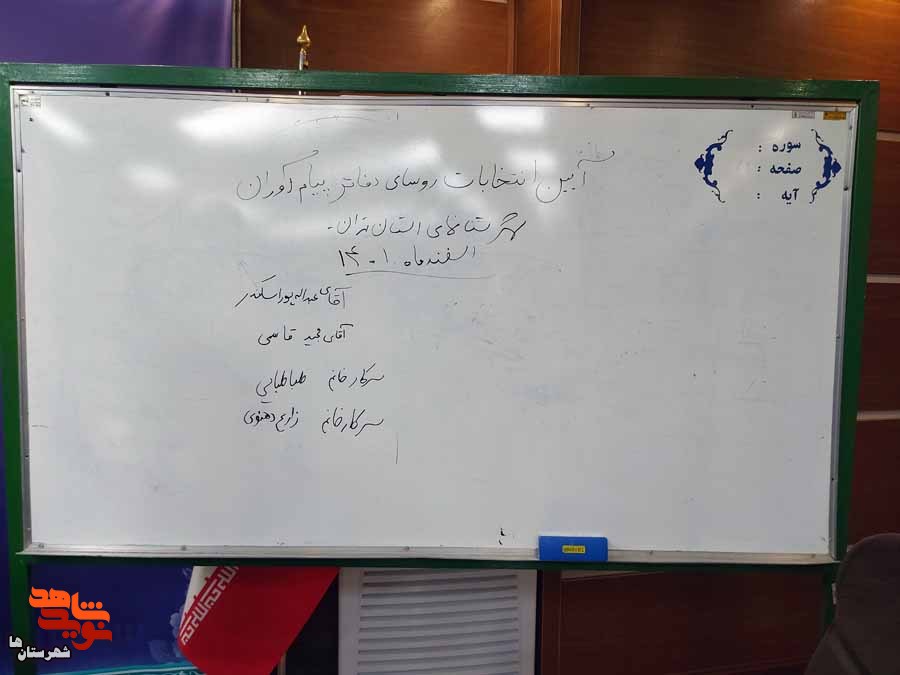 سوره :
صفحه :
آیه :
آیین انتخابات روسای دفاتر پیام آوران
شهرستانهای استان تهران -
اسفندماه ۱۴۰۱
آقای عبداله پوراسکندر
آقای مجید قاسمی
سرکار خانم طباطبایی
سرکار خانم زارع دهنوی
نوید شاهد
شهرستان ها